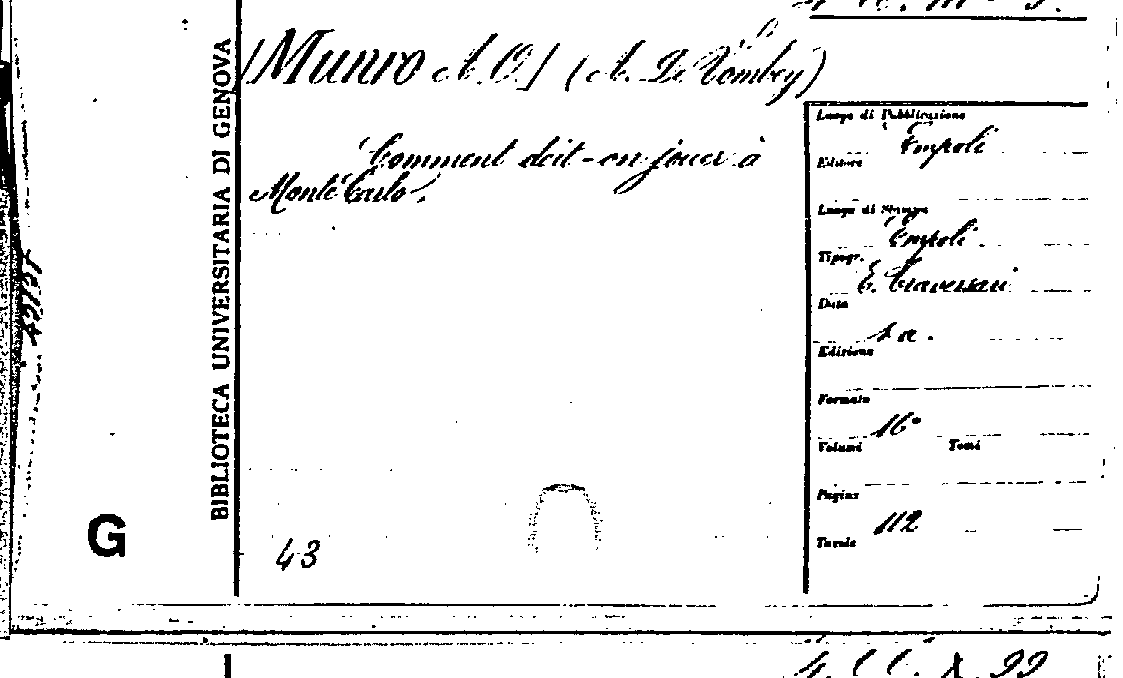 [Munro A. O.] (A. De Vombey)
Comment doit-on jouer à
Monté Carlo.
BIBLIOTECA UNIVERSITARIA DI GENOVA
Luogo di Pubblicazione
Empoli
Editore
Luogo di Stampa
Empoli
Tipogr.
E. Traversari
Data
s. a.
Edizione
Formato
16°
Volumi Tomi
Pagine
112
Tavole
G
43